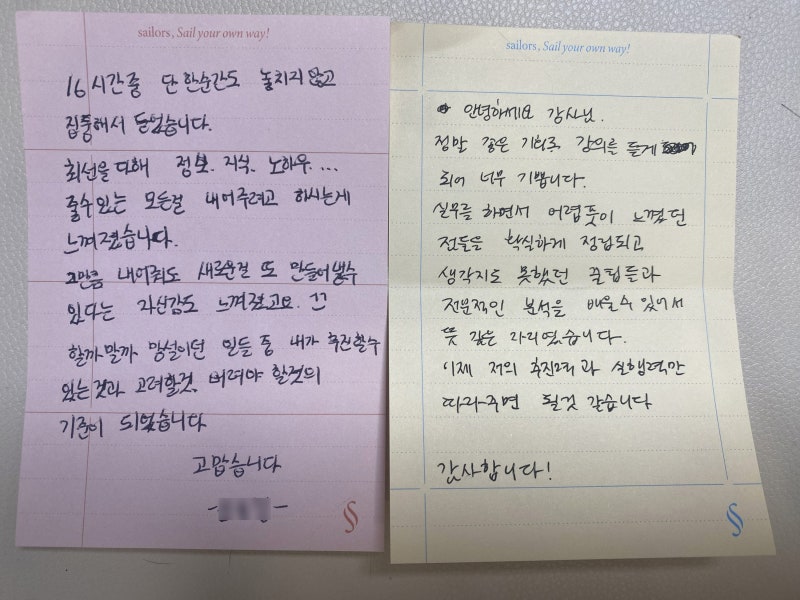 sailors, Sail your own way!
16시간중 단 한순간도 놓치지 않고
집중해서 들었습니다.
최선을 다해 정보. 지식. 노하우. ...
줄수있는 모든걸 내어주려고 하시는게
느껴졌습니다.
그만큼 내어줘도 새로운걸 또 만들어낼수
있다는 자신감도 느껴졌고요. ㄲ
할까말까 망설이던 일들 중 내가 추진할수
있는것과 고려할것. 버려야 할것의
기준이 되었습니다
고맙습니다
sailors, Sail your own way!
안녕하세요 강사님.
정말 좋은 기회로 강의를 듣게
되어 너무 기쁩니다.
실무를 하면서 어렴풋이 느꼈던
전들은 확실하게 정립되고
생각지도 못했던 꿀팁들과
전문적인 분석을 배울수 있어서
뜻 깊은 자리였습니다.
이제 저의 추진력과 실행력만
따라주면 될것 같습니다
감사합니다!